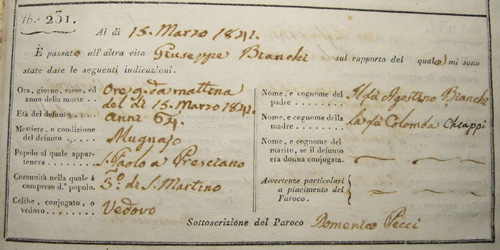 No. 231.
Al dì 15. Marzo 1841.
È passato all'altra vita Giuseppe Bianchi sul rapporto del quale mi sono
state date le seguenti indicazioni.
Ora, giorno, mese, ed anno della morte Ore 9. da mattina
del dì 15. Marzo 1841.
Età del defunto Anni 64
Mestiere, o condizione del defunto Mugnajo
Popolo al quale apparteneva S. Paolo a Presciano
Comunità nella quale è compreso d.° popolo. 3.° di S. Martino
Celibe, conjugato, o vedovo Vedovo
Nome, e cognome del padre Il fù Agostino Bianchi
Nome, e cognome della madre la fù Colomba Chiappi
Nome, e cognome del marito, se il defunto era donna conjugata.
Avvertenze particolari a piacimento del Paroco.
Sottoscrizione del Paroco Domenico Pecci